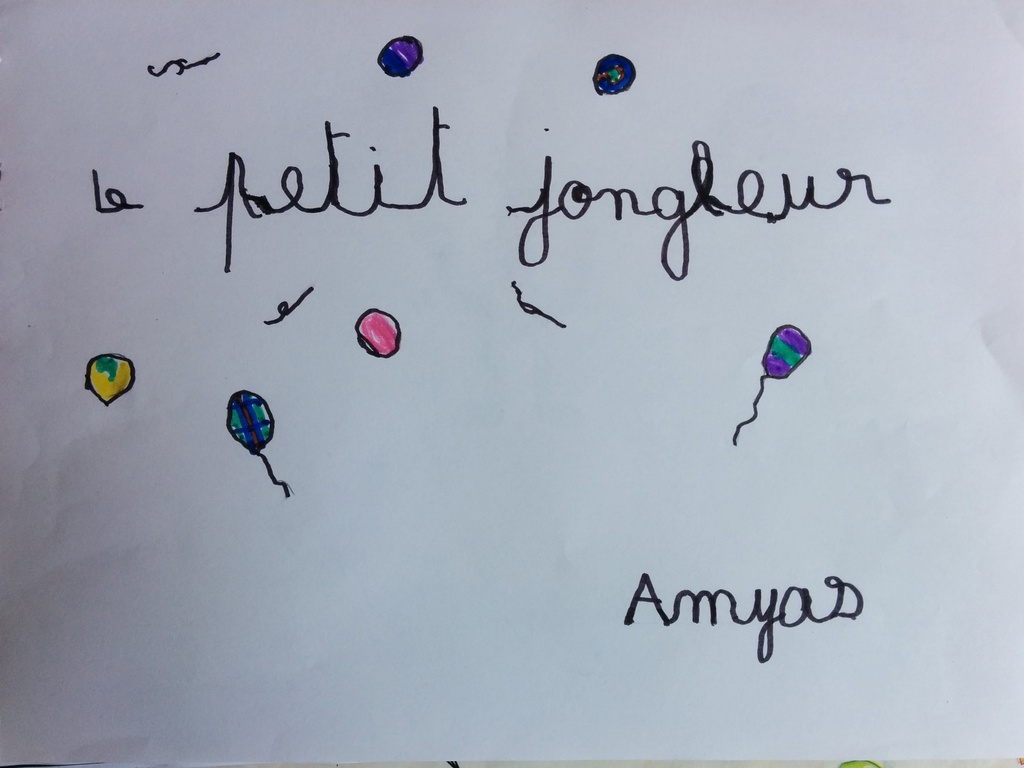 Le petit jongleur
Amyas